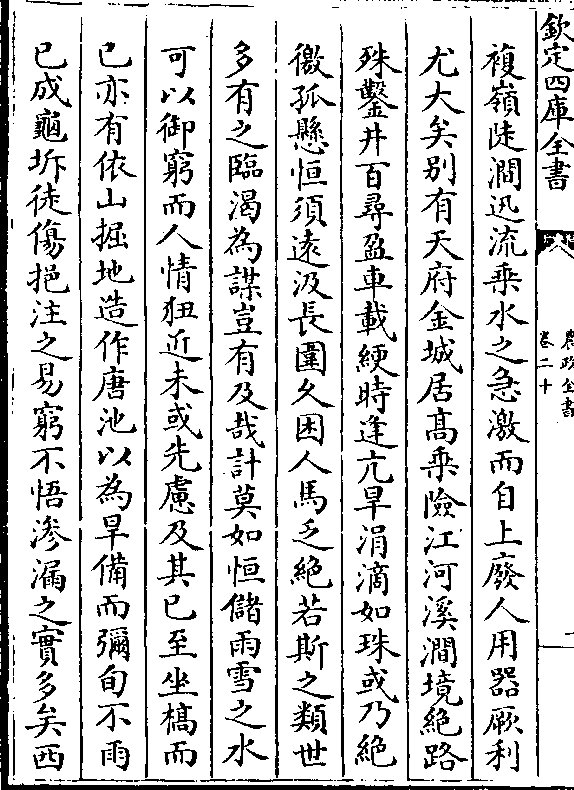 欽定四庫全書
農政全書
卷二十
複嶺陡澗迅流乘水之急激而自上廢人用器厥利
尤大矣别有天府金城居髙乗險江河溪澗境絶路
殊鑿井百尋盈車載綆時逢亢旱涓滴如珠或乃絶
徼孤懸恒須遠汲長圍久困人馬乏絶若斯之類世
多有之臨渴為謀豈有及哉計莫如恒儲雨雪之水
可以御窮而人情狃近未或先慮及其已至坐槁而
已亦有依山掘地造作唐池以為旱備而彌旬不雨
已成龜坼徒傷挹注之易窮不悟滲漏之實多矣西